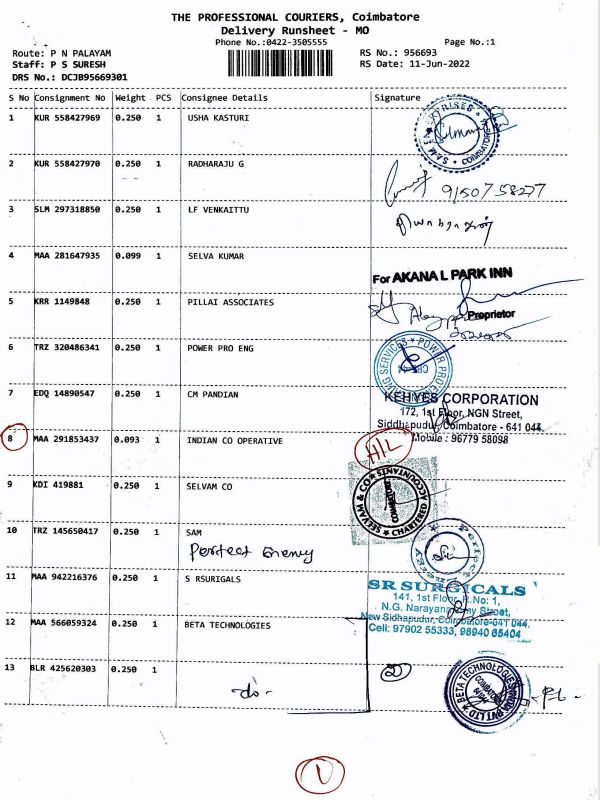 THE PROFESSIONAL COURIERS, Coimbatore
Delivery Runsheet - MO
Phone No.:0422-3505555 Page No.:1
Route: P N PALAYAM RS No.: 956693
Staff: P S SURESH RS Date: 11-Jun-2022
DRS No.: DCJB95669301
S No Consignment No Weight PCS Consignee Details Signature
1 KUR 558427969 0.250 1 USHA KASTURI
COIMBATORE
2 KUR 558427970 0.250 1 RADHARAJU G
9150758277
3 SLM 297318850 0.250 1 LF VENKAITTU
4 MAA 281647935 0.099 1 SELVA KUMAR
For AKANA L PARK INN
5 KRR 1149848 0.250 1 PILLAI ASSOCIATES
Proprietor
6 TRZ 320486341 0.250 1 POWER PRO ENG
7 EDQ 14890547 0.250 1 CM PANDIAN
KEHYES CORPORATION
172, 1st Floor, NGN Street,
Siddhapudur, Coimbatore - 641 044.
Mobile : 96779 58098
8 MAA 291853437 0.093 1 INDIAN CO OPERATIVE
H/L
9 KDI 419881 0.250 1 SELVAM CO
SELVAM & CO CHARTERED ACCOUNTANTS
10 TRZ 145650417 0.250 1 SAM
Perfect Enemy
11 MAA 942216376 0.250 1 S RSURIGALS
SR SURGICALS
141, 1st Floor, R.No: 1,
N.G. Narayanasamy Street,
New Sidhapudur, Coimbatore-641 044.
Cell: 97902 55333, 98940 66404
12 MAA 566059324 0.250 1 BETA TECHNOLOGIES
13 BLR 425620303 0.250 1
-do-
BETA TECHNOLOGIES INDIA PVT LTD